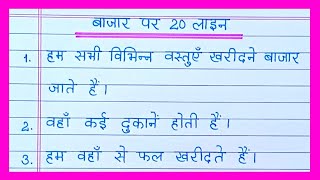 बाजार पर 20 लाइन
1. हम सभी विभिन्न वस्तुएँ खरीदने बाजार
जाते हैं।
2. वहाँ कई दुकानें होती हैं।
3. हम वहाँ से फल खरीदते हैं।